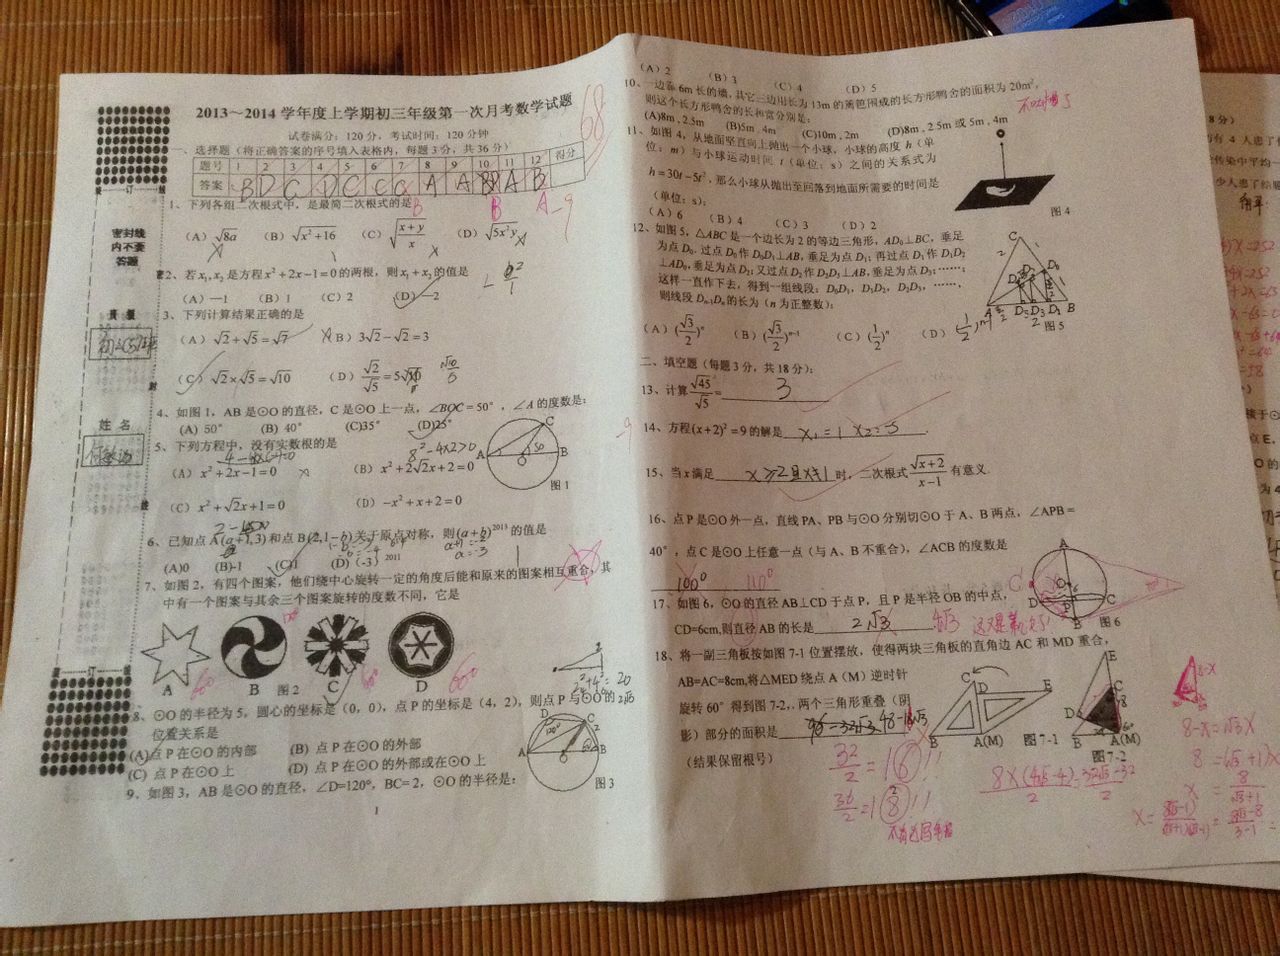 2013～2014 学年度上学期初三年级第一次月考数学试题
68
试卷满分：120 分，考试时间：120 分钟
一、选择题（将正确答案的序号填入表格内，每题 3 分，共 36 分）
题号 1 2 3 4 5 6 7 8 9 10 11 12 得分
答案 B D C D C C C A A B A B
B B A -9
1、下列各组二次根式中，是最简二次根式的是
(A) √8a (B) √(x²+16) (C) √((x+y)/x) (D) √(5x²y)
2、若 x₁, x₂ 是方程 x²+2x−1=0 的两根，则 x₁+x₂ 的值是
(A) —1 (B) 1 (C) 2 (D) —2
3、下列计算结果正确的是
(A) √2+√5=√7 (B) 3√2−√2=3
(C) √2×√5=√10 (D) √2/√5=5√10
4、如图 1，AB 是⊙O 的直径，C 是⊙O 上一点，∠BOC=50°，∠A 的度数是：
(A) 50° (B) 40° (C)35° (D)25°
5、下列方程中，没有实数根的是
(A) x²+2x−1=0 (B) x²+2√2x+2=0
(C) x²+√2x+1=0 (D) −x²+x+2=0
图 1
6、已知点 A(a+1,3) 和点 B(2,1−b) 关于原点对称，则 (a+b)²⁰¹³ 的值是
(A)0 (B)-1 (C)1 (D) (−3)²⁰¹¹
7、如图 2，有四个图案，他们绕中心旋转一定的角度后能和原来的图案相互重合，其
中有一个图案与其余三个图案旋转的度数不同，它是
A B 图 2 C D
60° 60°
8、⊙O 的半径为 5，圆心的坐标是（0，0），点 P 的坐标是（4，2），则点 P 与⊙O 的
位置关系是
(A)点 P 在⊙O 的内部 (B) 点 P 在⊙O 的外部
(C) 点 P 在⊙O 上 (D) 点 P 在⊙O 的外部或在⊙O 上
9、如图 3，AB 是⊙O 的直径，∠D=120°，BC=2，⊙O 的半径是：
图 3
1
密封线
内不要
答题
班级
姓名
(A) 2 (B) 3 (C) 4 (D) 5
10、一边靠 6m 长的墙，其它三边用长为 13m 的篱笆围成的长方形鸭舍的面积为 20m²，
则这个长方形鸭舍的长和宽分别是：
(A)8m , 2.5m (B)5m , 4m (C)10m , 2m (D)8m , 2.5m 或 5m , 4m
11、如图 4，从地面竖直向上抛出一个小球，小球的高度 h（单
位：m）与小球运动时间 t（单位：s）之间的关系式为
h=30t−5t²，那么小球从抛出至回落到地面所需要的时间是
（单位：s）：
(A) 6 (B) 4 (C) 3 (D) 2
图 4
12、如图 5，△ABC 是一个边长为 2 的等边三角形，AD₀⊥BC，垂足
为点 D₀. 过点 D₀ 作 D₀D₁⊥AB，垂足为点 D₁；再过点 D₁ 作 D₁D₂
⊥AD₀，垂足为点 D₂；又过点 D₂ 作 D₂D₃⊥AB，垂足为点 D₃；……；
这样一直作下去，得到一组线段：D₀D₁，D₁D₂，D₂D₃，……，
则线段 Dₙ₋₁Dₙ 的长为（n 为正整数）：
(A) (√3/2)ⁿ (B) (√3/2)ⁿ⁻¹ (C) (1/2)ⁿ (D) (1/2)ⁿ⁻¹
图 5
二、填空题（每题 3 分，共 18 分）：
13、计算 √45/√5 = 3
14、方程 (x+2)²=9 的解是 x₁=1 x₂=-5 .
15、当 x 满足 x≥-2且x≠1 时，二次根式 √(x+2)/(x−1) 有意义.
16、点 P 是⊙O 外一点，直线 PA、PB 与⊙O 分别切⊙O 于 A、B 两点，∠APB =
40°，点 C 是⊙O 上任意一点（与 A、B 不重合），∠ACB 的度数是
100° 110°
17、如图 6，⊙O 的直径 AB⊥CD 于点 P，且 P 是半径 OB 的中点，
CD=6cm,则直径 AB 的长是 2√3 4√3
图 6
18、将一副三角板按如图 7-1 位置摆放，使得两块三角板的直角边 AC 和 MD 重合，
AB=AC=8cm,将△MED 绕点 A（M）逆时针
旋转 60° 得到图 7-2,，两个三角形重叠（阴
影）部分的面积是 48-16√3
（结果保留根号）
图 7-1
图 7-2
32/2=16!!
36/2=18!!
8×(4√3-4)/2=(32√3-32)/2
8-x
8-x=√3x
8=(√3+1)x
x=8/(√3+1)